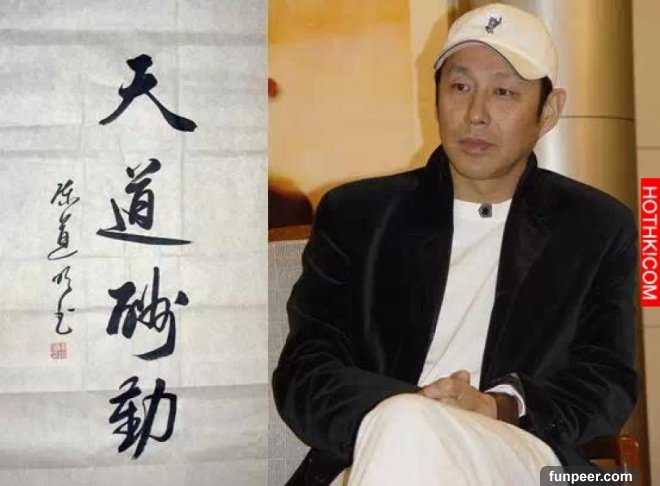 天道酬勤
陈道明书
HOTHK!COM
funpeer.com